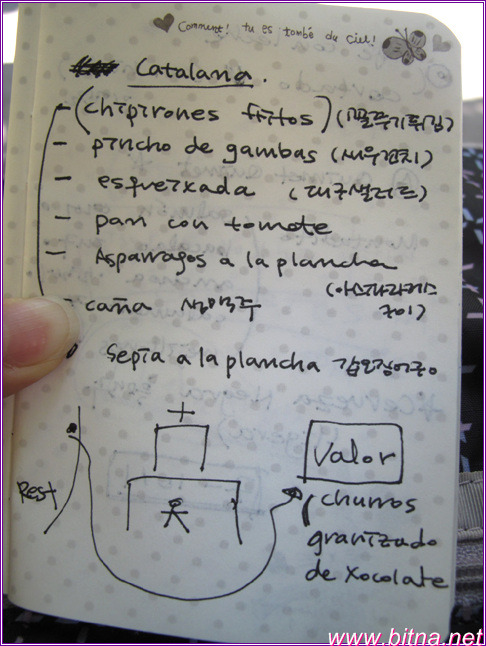 Comment! tu es tombé du ciel!
Catalana.
- (chipirones fritos) (꼴뚜기튀김)
- pincho de gambas (새우꼬치)
- esqueixada (대구샐러드)
- pan con tomate
- Asparragos a la plancha
(아스파라거스 구이)
- caña 생맥주
Sepia a la plancha 갑오징어구이
Rest
Valor
churros
granizado
de xocolate
www.bitna.net